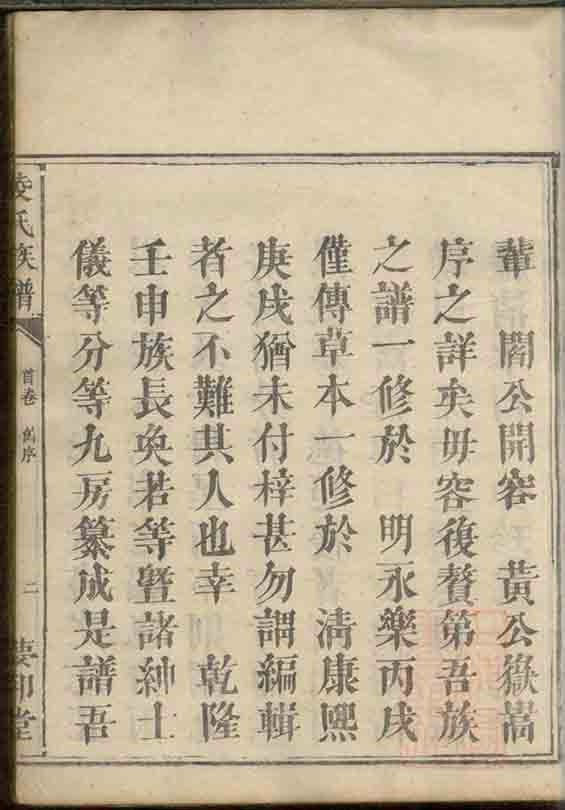 輩　閣公開容　黃公嶽嵩
序之詳矣毋容復贅第吾族
之譜一修於　明永樂丙戌
僅傳草本一修於　淸康熙
庚戌猶未付梓甚勿謂編輯
者之不難其人也幸　乾隆
壬申族長奐若等曁諸紳士
儀等分等九房纂成是譜吾
凌氏族譜
首卷　舊序
二